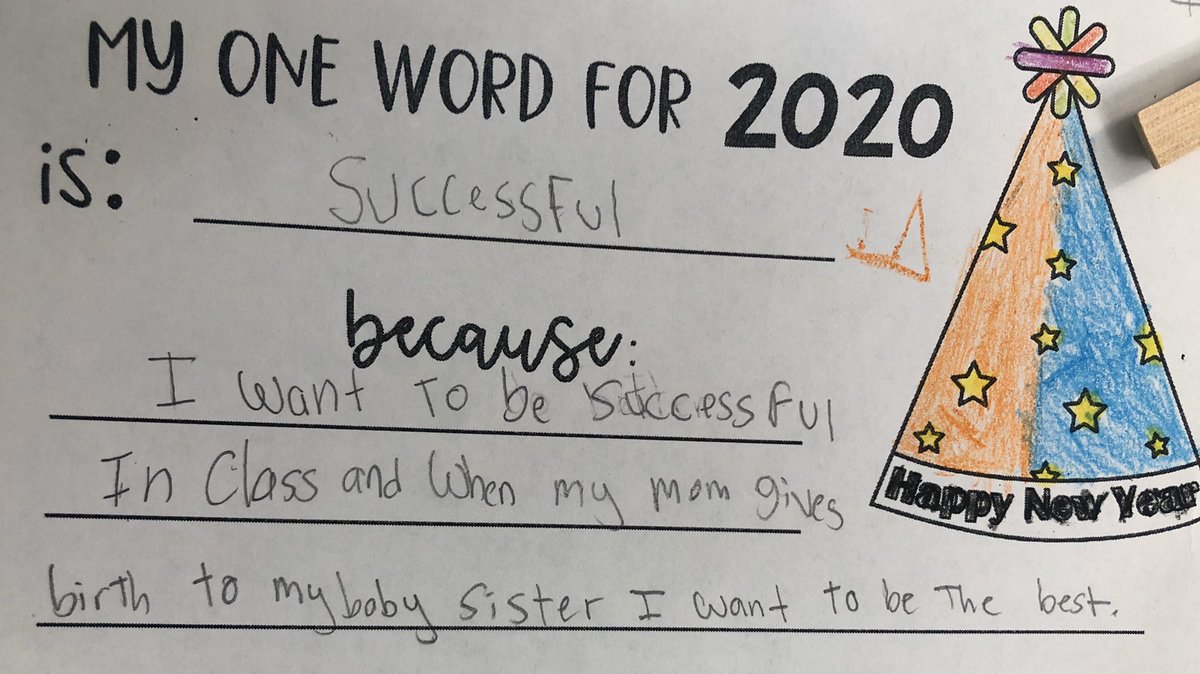 MY ONE WORD FOR 2020
is: Successful
because:
I want To be successful
In Class and When my mom gives
birth to my baby sister I want to be The best.
Happy New Year